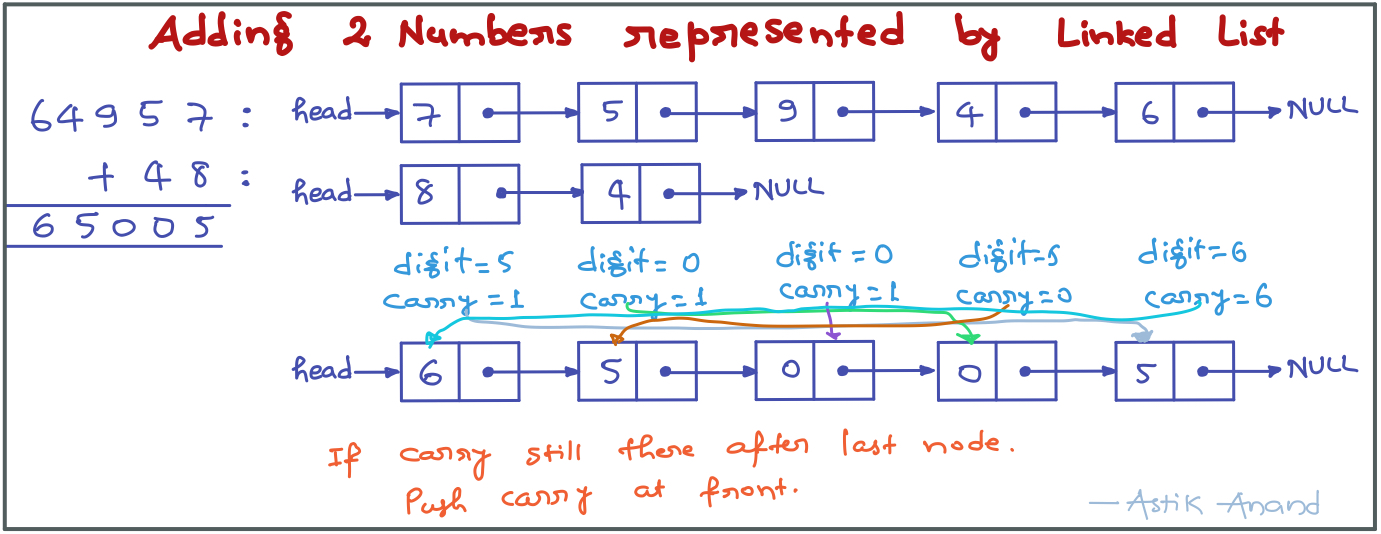 Adding 2 Numbers represented by Linked List
64957 : head 7 5 9 4 6 NULL
+ 48 : head 8 4 NULL
65005
digit = 5 digit = 0 digit = 0 digit=5 digit = 6
carry = 1 carry = 1 carry = 1 carry = 0 carry = 6
head 6 5 0 0 5 NULL
If carry still there after last node.
Push carry at front.
— Astik Anand